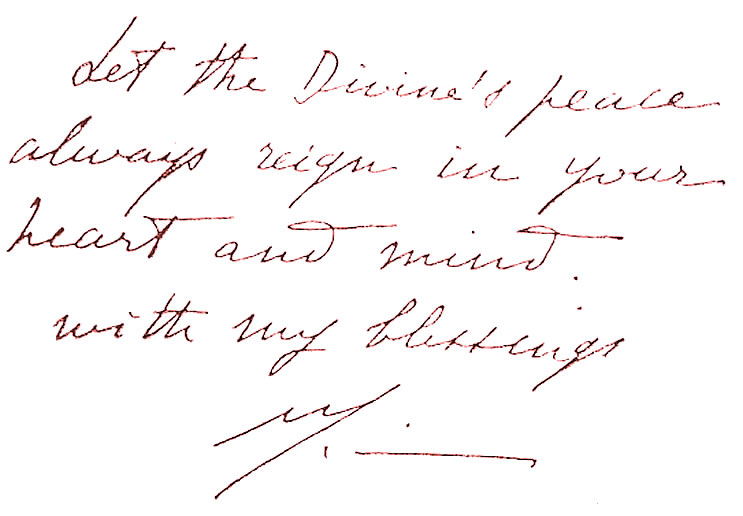 Let the Divine's peace
always reign in your
heart and mind.
with my blessings